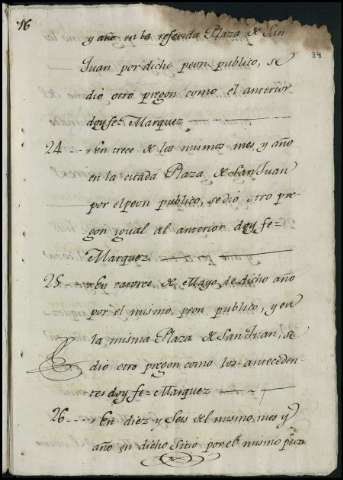 16
34
y año en la referida Plaza de San
Juan por dicho peon publico, se
dió otro pregon como el anterior
doy fe,, Marquez
24 En trece de los mismos mes, y año
en la citada Plaza de San Juan
por el peon publico, se dió otro pre
gon igual al anterior doy fe=
Marquez
25 En catorce de Mayo de dicho año
por el mismo, peon publico, y en
la misma Plaza de San Juan, se
dió otro pregon como los anteceden
tes doy fe= Marquez
26 En diez y seis del mismo, mes y
año en dicho sitio por el mismo peon